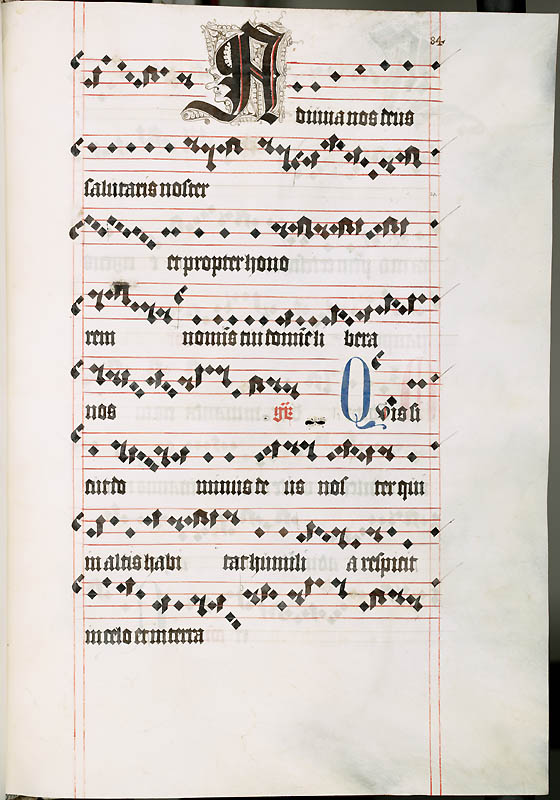 84.
Adiuua nos deus
salutaris noster
et propter hono
rem nominis tui domine li bera
nos Quis si
cut do minus de us nos ter qui
in altis habi tat humili a respicit
in celo et in terra